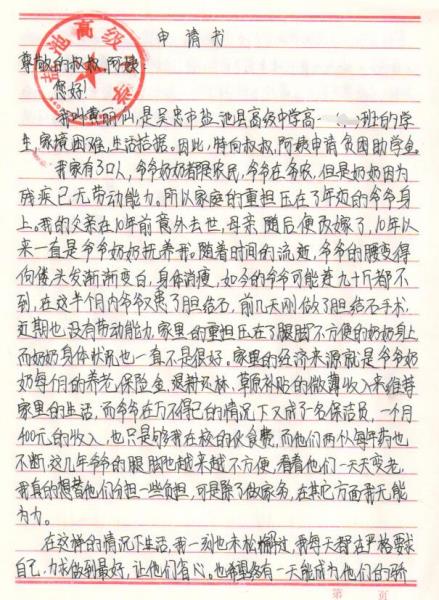 申请书
尊敬的叔叔、阿姨:
您好!
我叫黄丽仙,是吴忠市盐池县高级中学高一 班的学
生,家境困难,生活拮据。因此,特向叔叔、阿姨申请贫困助学金。
我家有了3口人,爷爷奶奶都是农民,爷爷在务农,但是奶奶因为
残疾已无劳动能力。所以家庭的重担压在了年迈的爷爷身
上。我的父亲在10年前意外去世,母亲随后便改嫁了,10年以
来一直是爷爷奶奶抚养我。随着时间的流逝,爷爷的腰变得
佝偻,头发渐渐变白,身体消瘦,如今的爷爷可能连九十斤都不
到,在这半个月内爷爷又患了胆结石,前几天刚做了胆结石手术,
近期也没有劳动能力。家里的重担压在了腿脚不方便的奶奶身上,
而奶奶身体状况也一直不是很好。家里的经济来源就是爷爷奶
奶每个月的养老保险金、退耕还林、草原补贴的微薄收入来维持
家里的生活,而爷爷在万不得已的情况下又成了名保洁员,一个月
400元的收入,也只是够我在校的伙食费,而他们两个每年药也
不断,这几年爷爷的腿脚也越来越不方便,看着他们一天天变老,
我真的想替他们分担一些负担,可是除了做家务,在其它方面我无能
为力。
在这样的情况下生活,我一刻也未松懈过,我每天都在严格要求
自己,力求做到最好,让他们省心。也希望能有一天能成为他们的骄
第 页
高级
池